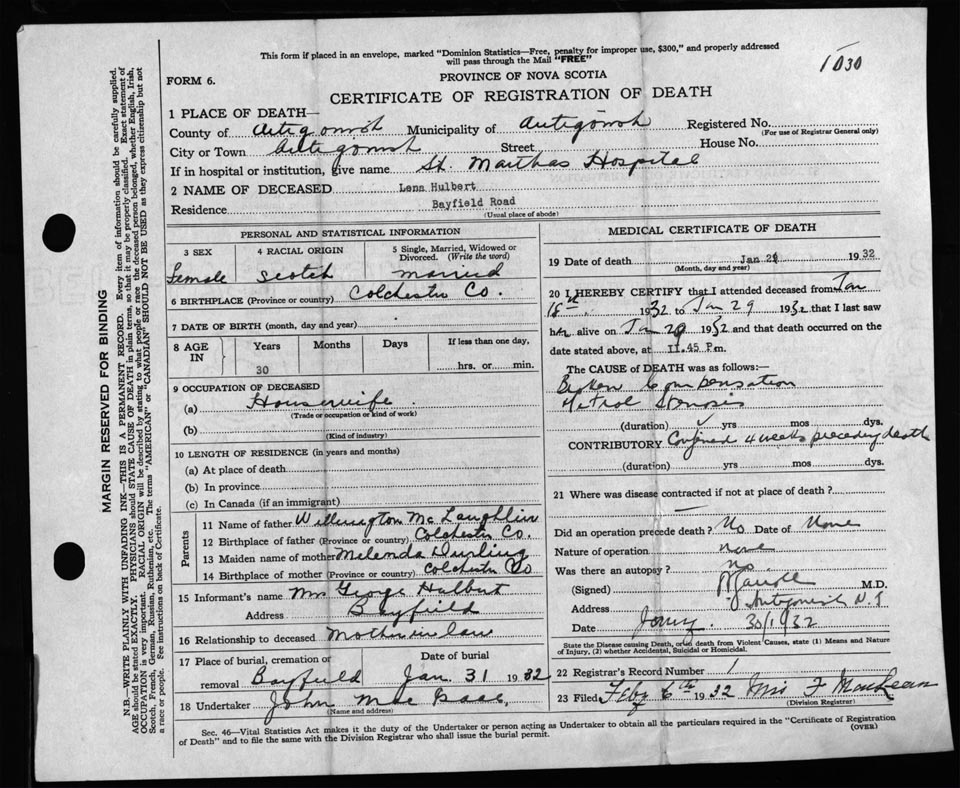 This form if placed in an envelope, marked "Dominion Statistics—Free, penalty for improper use, $300," and properly addressed
will pass through the Mail "FREE"
1030
FORM 6.
PROVINCE OF NOVA SCOTIA
CERTIFICATE OF REGISTRATION OF DEATH
MARGIN RESERVED FOR BINDING
N.B.—WRITE PLAINLY WITH UNFADING INK—THIS IS A PERMANENT RECORD. Every item of information should be carefully supplied.
AGE should be stated EXACTLY. PHYSICIANS should STATE CAUSE OF DEATH in plain terms, so that it may be properly classified. Exact statement of
OCCUPATION is very important. RACIAL ORIGIN will be described by stating to what people or race the deceased person belonged, whether English, Irish,
Scotch, French, German, Russian, Ruthenian, etc. The terms "AMERICAN" or "CANADIAN" SHOULD NOT BE USED as they express citizenship but not
a race or people. See instructions on back of Certificate.
1 PLACE OF DEATH—
County of Antigonish Municipality of Antigonish Registered No.
(For use of Registrar General only)
City or Town Antigonish Street House No.
If in hospital or institution, give name St. Marthas Hospital
2 NAME OF DECEASED Lena Hulbert
Residence Bayfield Road
(Usual place of abode)
PERSONAL AND STATISTICAL INFORMATION
3 SEX 4 RACIAL ORIGIN 5 Single, Married, Widowed or Divorced. (Write the word)
Female Scotch Married
6 BIRTHPLACE (Province or country) Colchester Co.
7 DATE OF BIRTH (month, day and year)
8 AGE IN Years Months Days If less than one day,
30 hrs. or min.
9 OCCUPATION OF DECEASED
(a) Housewife
(Trade or occupation or kind of work)
(b)
(Kind of industry)
10 LENGTH OF RESIDENCE (in years and months)
(a) At place of death
(b) In province
(c) In Canada (if an immigrant)
Parents
11 Name of father Willmington McLaughlin
12 Birthplace of father (Province or country) Colchester Co.
13 Maiden name of mother Melenda Durling
14 Birthplace of mother (Province or country) Colchester Co
15 Informant's name Mrs George Hulbert
Address Bayfield
16 Relationship to deceased Mother in law
17 Place of burial, cremation or removal Bayfield Date of burial Jan. 31 1932
18 Undertaker John Mac Isaac,
(Name and address)
MEDICAL CERTIFICATE OF DEATH
19 Date of death Jan 29 1932
(Month, day and year)
20 I HEREBY CERTIFY that I attended deceased from Jan
18th 1932 to Jan 29 1932 that I last saw
her alive on Jan 29 1932 and that death occurred on the
date stated above, at 11.45 P.m.
The CAUSE of DEATH was as follows:—
Broken Compensation
Mitral Stenosis
(duration) yrs mos dys.
CONTRIBUTORY Confined 4 weeks preceding death
(duration) yrs mos dys.
21 Where was disease contracted if not at place of death?
Did an operation precede death? No Date of None
Nature of operation none
Was there an autopsy? no
(Signed) M.D.
Address Antigonish N.S
Date 30/1/32
State the Disease causing Death, or in death from Violent Causes, state (1) Means and Nature
of Injury, (2) whether Accidental, Suicidal or Homicidal.
22 Registrar's Record Number 1
23 Filed Feby 6th 1932 Mrs F. MacLean
(Division Registrar)
Sec. 46—Vital Statistics Act makes it the duty of the Undertaker or person acting as Undertaker to obtain all the particulars required in the "Certificate of Registration
of Death" and to file the same with the Division Registrar who shall issue the burial permit.
(OVER)